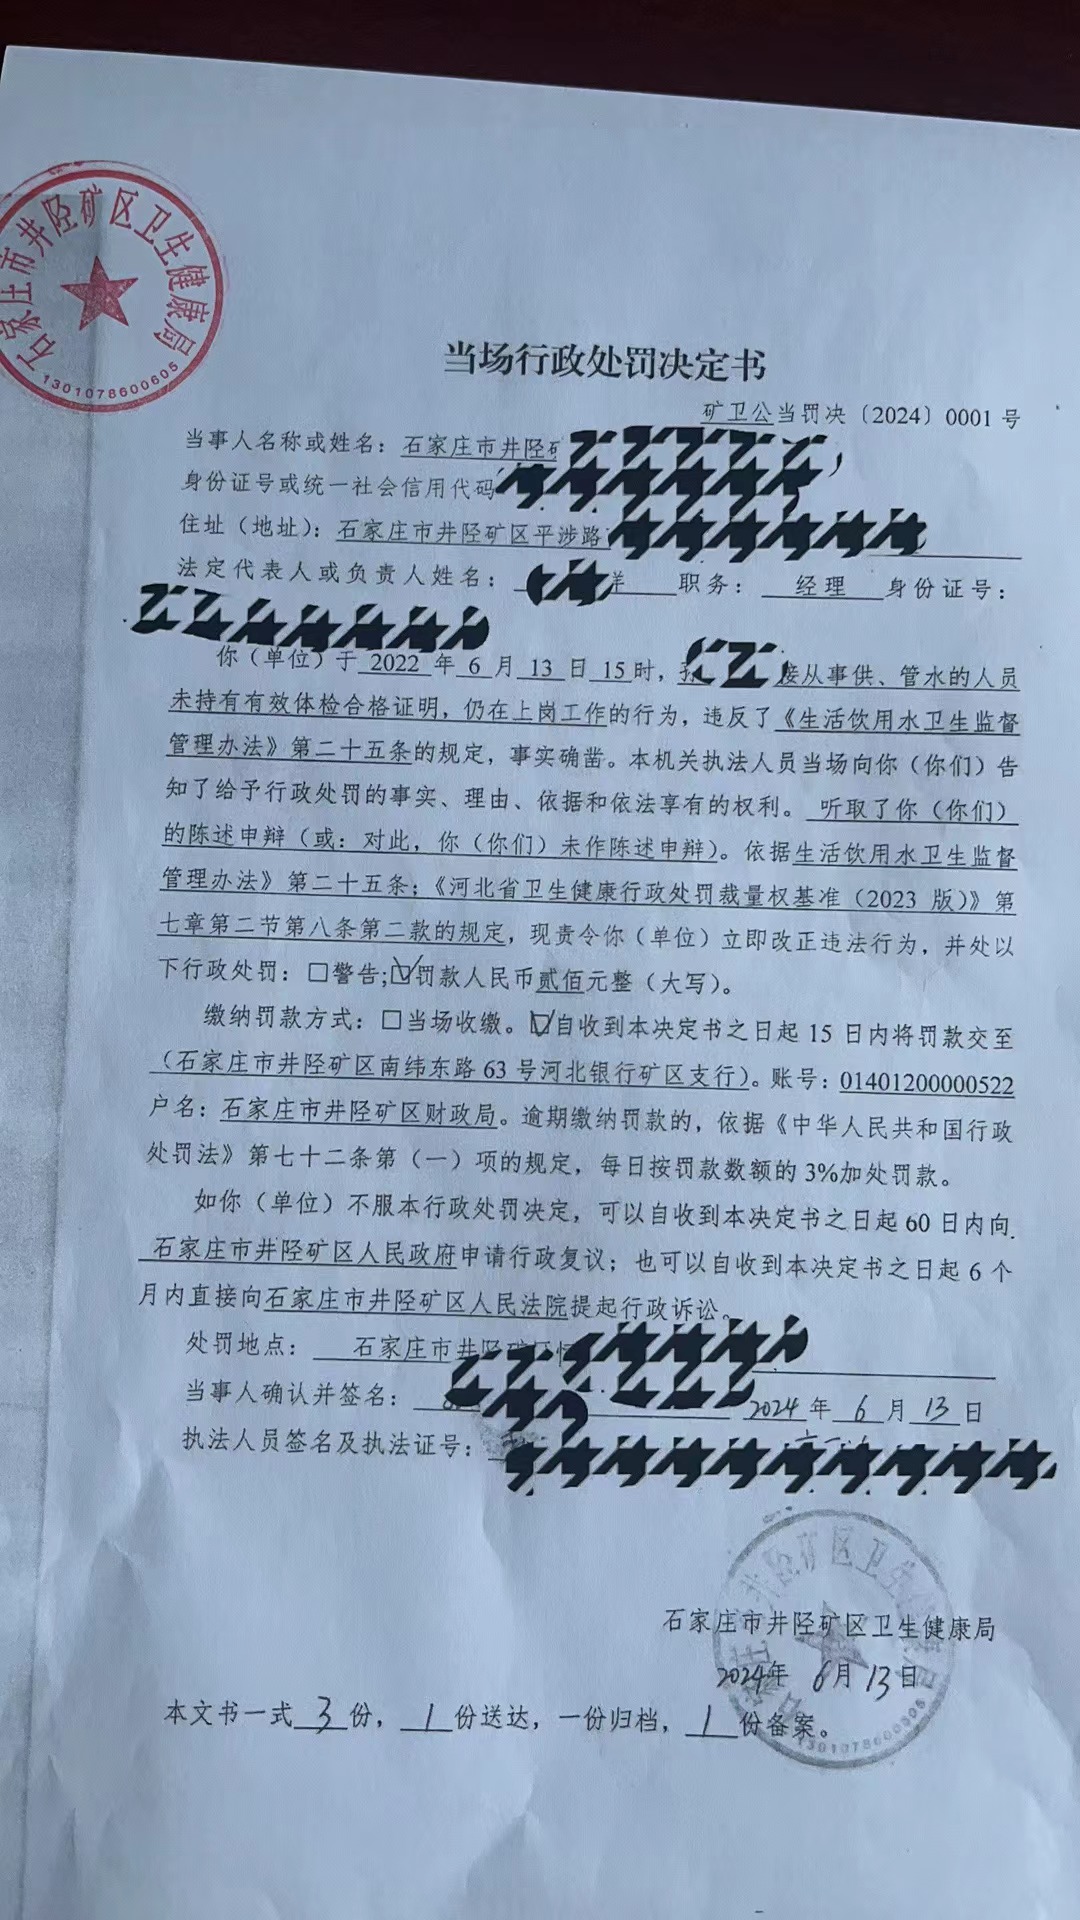 石家庄市井陉矿区卫生健康局
1301078600605
当场行政处罚决定书
矿卫公当罚决〔2024〕0001 号
当事人名称或姓名：石家庄市井陉矿
身份证号或统一社会信用代码
住址（地址）：石家庄市井陉矿区平涉路
法定代表人或负责人姓名： 洋 职务： 经理 身份证号：
你（单位）于 2022 年 6 月 13 日 15 时， 接从事供、管水的人员
未持有有效体检合格证明，仍在上岗工作的行为，违反了《生活饮用水卫生监督
管理办法》第二十五条的规定，事实确凿。本机关执法人员当场向你（你们）告
知了给予行政处罚的事实、理由、依据和依法享有的权利。 听取了你（你们）
的陈述申辩（或：对此，你（你们）未作陈述申辩）。依据生活饮用水卫生监督
管理办法》第二十五条；《河北省卫生健康行政处罚裁量权基准（2023 版）》第
七章第二节第八条第二款的规定，现责令你（单位）立即改正违法行为，并处以
下行政处罚：□警告;☑罚款人民币贰佰元整（大写）。
缴纳罚款方式：□当场收缴。☑自收到本决定书之日起 15 日内将罚款交至
（石家庄市井陉矿区南纬东路 63 号河北银行矿区支行）。账号：01401200000522
户名：石家庄市井陉矿区财政局。逾期缴纳罚款的，依据《中华人民共和国行政
处罚法》第七十二条第（一）项的规定，每日按罚款数额的 3%加处罚款。
如你（单位）不服本行政处罚决定，可以自收到本决定书之日起 60 日内向
石家庄市井陉矿区人民政府申请行政复议；也可以自收到本决定书之日起 6 个
月内直接向石家庄市井陉矿区人民法院提起行政诉讼。
处罚地点： 石家庄市井陉矿区
当事人确认并签名： 2024 年 6 月 13 日
执法人员签名及执法证号：
石家庄市井陉矿区卫生健康局
2024年 6月 13日
本文书一式 3 份， 1 份送达，一份归档， 1 份备案。
1301078600605